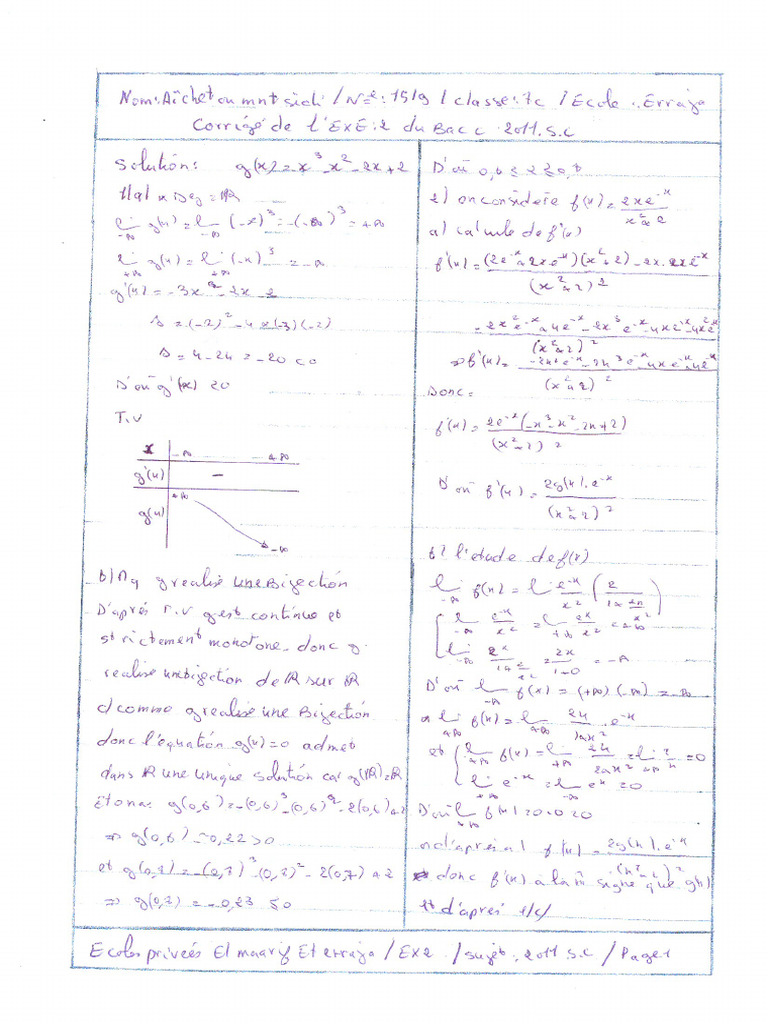 Nom: Aïchetou mnt sidi / N°: 1519 / classe: 7c / Ecole: Erraja
Corrigé de l'EXE:2 du Bac c 2011.S.C
Solution: g(x) = x³ - x² - 2x + 2
1)a) x Dg = IR
lim g(x) = lim (-x)³ = -(-∞)³ = +∞
-∞ -∞
lim g(x) = lim (-x)³ = -∞
+∞ +∞
g'(x) = -3x² - 2x - 2
Δ = (-2)² - 4x(-3)(-2)
Δ = 4 - 24 = -20 < 0
D'où g'(x) < 0
T.V
x | -∞ +∞
g'(x) | -
g(x) | +∞ -∞
b) Mq g realise une Bijection
D'aprés T.V g est continue et
strictement monotone donc g
realise une bijection de IR sur IR
c) comme g realise une Bijection
donc l'équation g(x)=0 admet
dans IR une unique solution car g(IR)=IR
Et ona: g(0,6) = -(0,6)³ - (0,6)² - 2(0,6) + 2
⇒ g(0,6) = 0,22 > 0
et g(0,7) = -(0,7)³ - (0,7)² - 2(0,7) + 2
⇒ g(0,7) = -0,23 < 0
D'où 0,6 ≤ α ≤ 0,7
2) on considère f(x) = 2xe^-x / (x²+2)
a) calcule de f'(x)
f'(x) = (2e^-x - 2xe^-x)(x²+2) - 2x·2xe^-x / (x²+2)²
= 2x²e^-x + 4e^-x - 2x³e^-x - 4xe^-x - 4x²e^-x / (x²+2)²
⇒ f'(x) = -2x²e^-x - 2x³e^-x - 4xe^-x + 4e^-x / (x²+2)²
Donc:
f'(x) = 2e^-x(-x³ - x² - 2x + 2) / (x²+2)²
D'où f'(x) = 2g(x)·e^-x / (x²+2)²
b) l'étude de f(x)
D'où lim f(x) = (+∞)(-∞) = -∞
-∞
* lim f(x) = lim 2x/(2+x²) · e^-x
+∞ +∞
et lim f(x) = lim 2x/(2+x²) = lim 2/x = 0
+∞ +∞ +∞
lim e^-x = lim e^x = 0
+∞ -∞
D'où lim f(x) = 0×0 = 0
+∞
* d'aprés a) f'(x) = 2g(x)·e^-x / (x²+2)²
* donc f'(x) a la m̂ signe que g(x)
et d'aprés 1/c/
Ecoles privées El maarif Et erraja / EX2 / sujet: 2011 S.C / Page 1